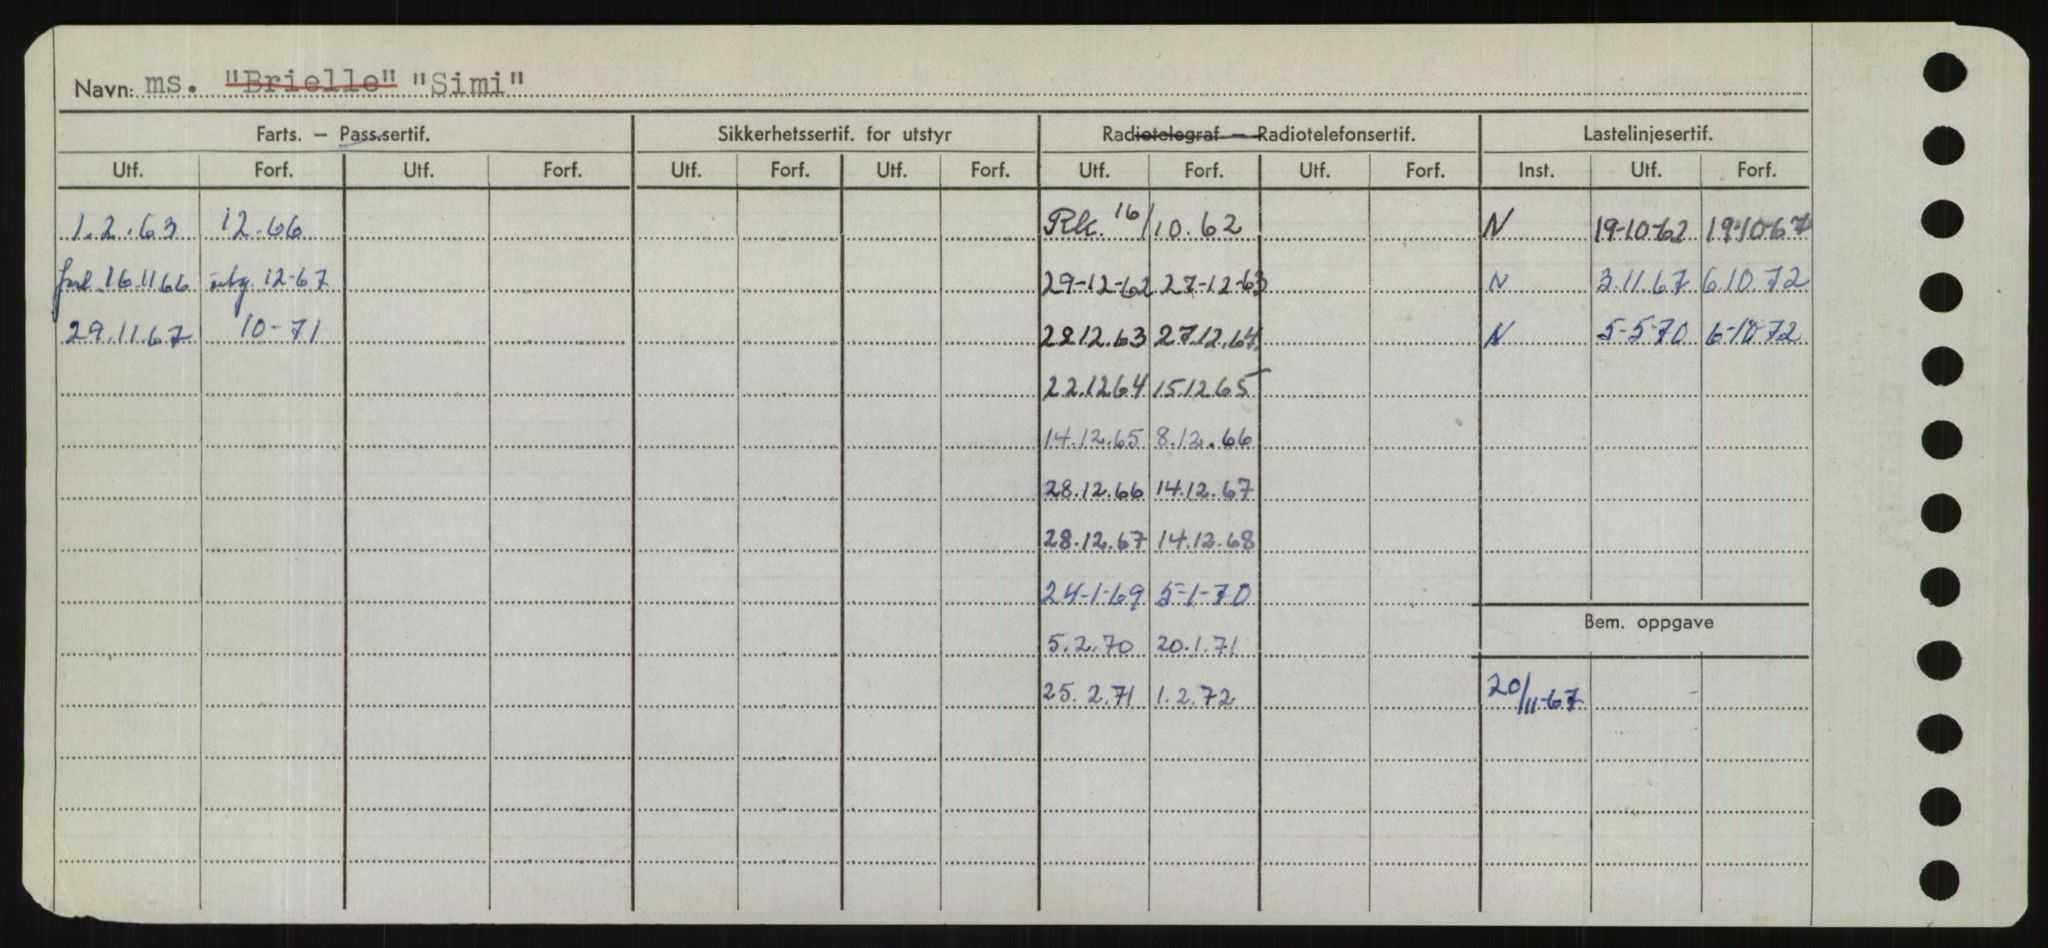 Navn: ms. "Brielle" "Simi"
Farts. — Pass.sertif. Sikkerhetssertif. for utstyr Radiotelegraf — Radiotelefonsertif. Lastelinjesertif.
Utf. Forf. Utf. Forf. Utf. Forf. Utf. Forf. Utf. Forf. Utf. Forf. Inst. Utf. Forf.
1.2.63 12.66 Rk. 16/10.62 N 19-10-62 19-10-67
forl. 16.11.66 utg. 12-67 29-12-62 27-12-63 N 3.11.67 6.10.72
29.11.67 10-71 28.12.63 27.12.64 N 5-5-70 6-10-72
22.12.64 15.12.65
14.12.65 8.12.66
28.12.66 14.12.67
28.12.67 14.12.68
24-1-69 5-1-70
Bem. oppgave
5.2.70 20.1.71
25.2.71 1.2.72 20/11-67